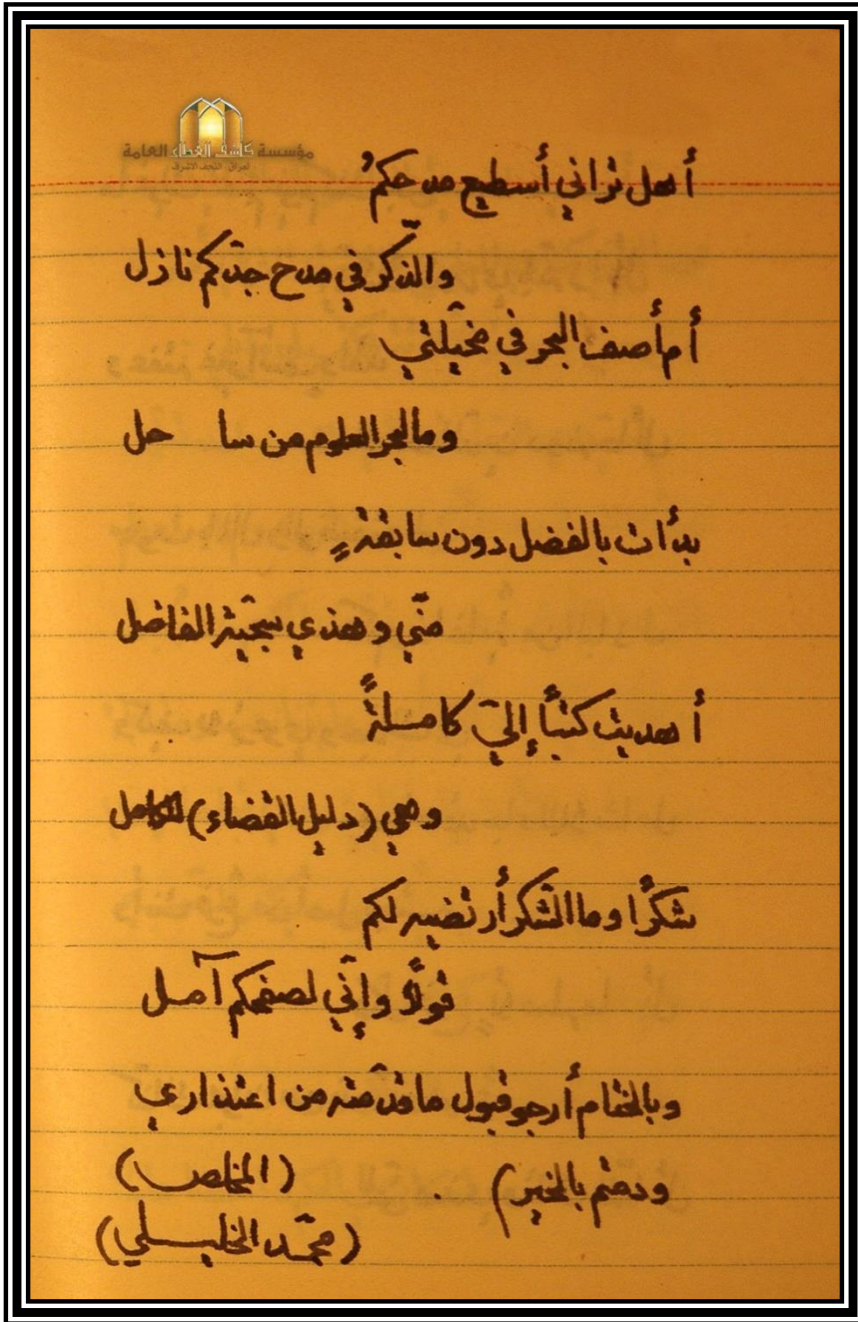 مؤسسة كاشف الغطاء العامة
العراق - النجف الاشرف
أهل تراني أسطيع مدحكمُ
والذّكر في مدح جدّكم نازل
أم أصف البحر في مخيّلتي
وما لبحر العلوم من سا حل
بدأت بالفضل دون سابقةٍ
منّي وهذي سجيّة الفاضل
أهديت كتباً إليّ كاملةً
وهي (دليل القضاء) للكامل
شكرًا وما الشّكر أرتضيه لكم
قولاً وإنّي لصفحكم آمل
وبالختام أرجو قبول ما قدّمته من اعتذاري
ودمتم بالخير) . (المخلص)
(محمّد الخليلي)